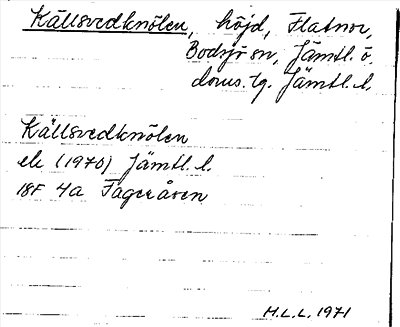 Källsvedknölen, höjd, Flatnor,
Bodsjö sn, Jämtl. ö.
doms. tg. Jämtl. l.
Källsvedknölen
ek (1970) Jämtl. l.
18F 4a Fageråsen
H.L.L. 1971